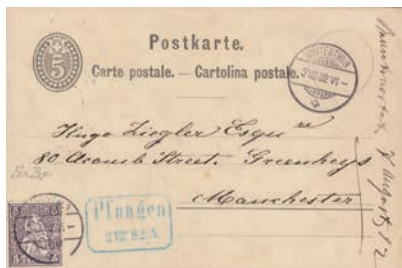 Postkarte.
Carte postale. — Cartolina postale.
5
WINTERTHUR
Hugo Ziegler Esqu re
80 Acomb Street. Greenheys
Manchester
Pfungen
2 VIII 82
August 82
5